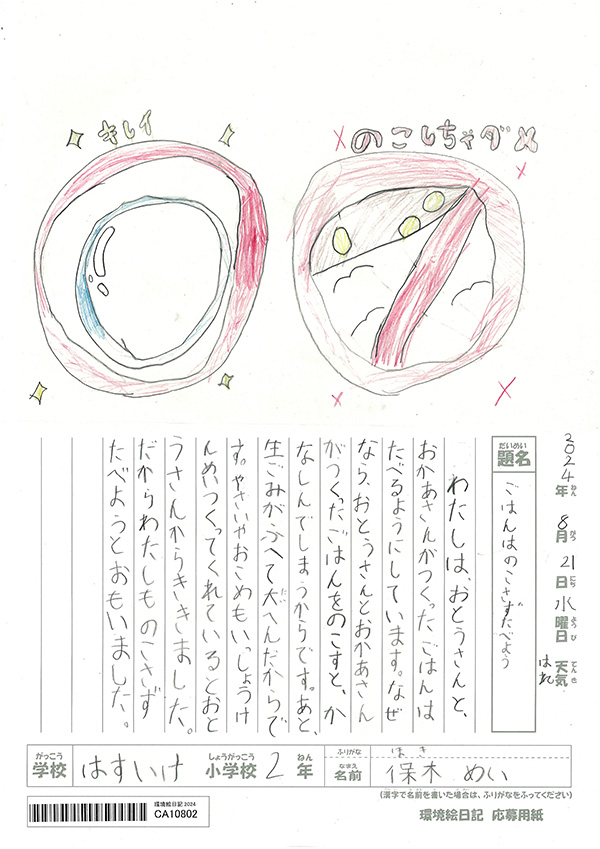 キレイ
のこしちゃダメ
2024年 8月 21日 水曜日 天気 はれ
ねん がつ にち ようび てんき
だいめい
題名
ごはんはのこさずたべよう
わたしは、おとうさんと、
おかあさんがつくったごはんは
たべるようにしています。なぜ
なら、おとうさんとおかあさん
がつくったごはんをのこすと、か
なしんでしまうからです。あと、
生ごみがふへて大へんだからで
だい
す。やさいやおこめもいっしょうけ
んめいつくってくれているとおと
うさんからききました。
だからわたしものこさず
たべようとおもいました。
がっこう
学校
はすいけ
しょうがっこう
小学校
2
ねん
年
ふりがな
ほき
なまえ
名前
保木 めい
(漢字で名前を書いた場合は、ふりがなをふってください)
環境絵日記 2024
CA10802
環境絵日記 応募用紙